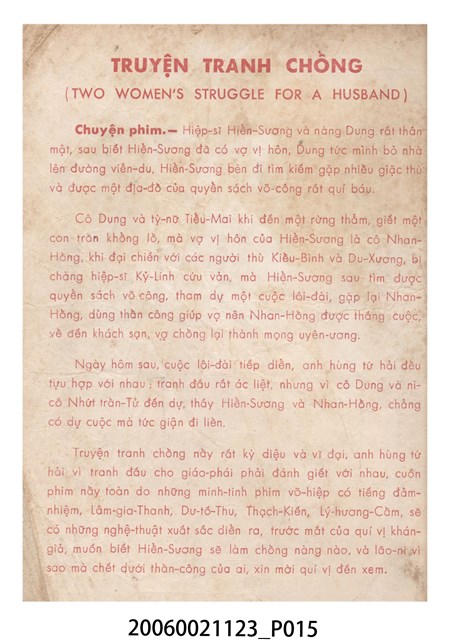 TRUYỆN TRANH CHỒNG
(TWO WOMEN'S STRUGGLE FOR A HUSBAND)
Chuyện phim.— Hiệp-sĩ Hiền-Sương và nàng Dung rất thân
mật, sau biết Hiền-Sương đã có vợ vị hôn, Dung tức mình bỏ nhà
lên đường viễn-du, Hiền-Sương bèn đi tìm kiếm gặp nhiều giặc thù
và được một địa-đồ của quyển sách võ-công rất quí báu.
Cô Dung và tỳ-nữ Tiểu-Mai khi đến một rừng thẳm, giết một
con trăn khổng lồ, mà vợ vị hôn của Hiền-Sương là cô Nhan-
Hồng, khi đại chiến với các người thù Kiều-Bình và Du-Xương, bị
chàng hiệp-sĩ Kỷ-Linh cứu vản, mà Hiền-Sương sau tìm được
quyển sách võ-công, tham dự một cuộc lôi-đài, gặp lại Nhan-
Hồng, dùng thần công giúp vợ nên Nhan-Hồng được thắng cuộc,
về đến khách sạn, vợ chồng lại thành mọng uyên-ương.
Ngày hôm sau, cuộc lôi-đài tiếp diễn, anh hùng tứ hải đều
tựu hợp với nhau ; tranh đấu rất ác liệt, nhưng vì cô Dung và ni-
cô Nhứt trần-Tử đến dự, thấy Hiền-Sương và Nhan-Hồng, chẳng
có dự cuộc mà tức giận đi liền.
Truyện tranh chồng nầy rất kỳ diệu và vĩ đại, anh hùng tứ
hải vì tranh đấu cho giáo-phái phải đánh giết với nhau, cuốn
phim nầy toàn do những minh-tinh phim võ-hiệp có tiếng đảm-
nhiệm, Lâm-gia-Thanh, Dư-tố-Thu, Thạch-Kiên, Lý-hương-Cầm, sẽ
có những nghệ-thuật xuất sắc diễn ra, trước mắt của quí vị khán-
giả, muốn biết Hiền-Sương sẽ làm chồng nàng nào, và lão-ni vì
sao mà chết dưới thần-công của ai, xin mời quí vị đến xem.
20060021123_P015